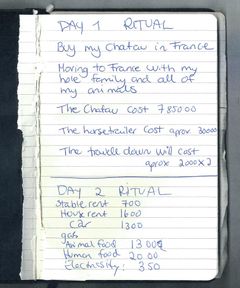 DAY 1 RITUAL
Buy my Chatau in France
Moving to France with my
hole family and all of
my animals
The Chatau cost 785000
The horsetrailer cost aprox 30000
The travell down will cost
aprox 2000x2
DAY 2 RITUAL
Stable rent 700
House rent 1600
Car 1300
gas
Animal food 1300
Human food 2000
Electrissity: 350